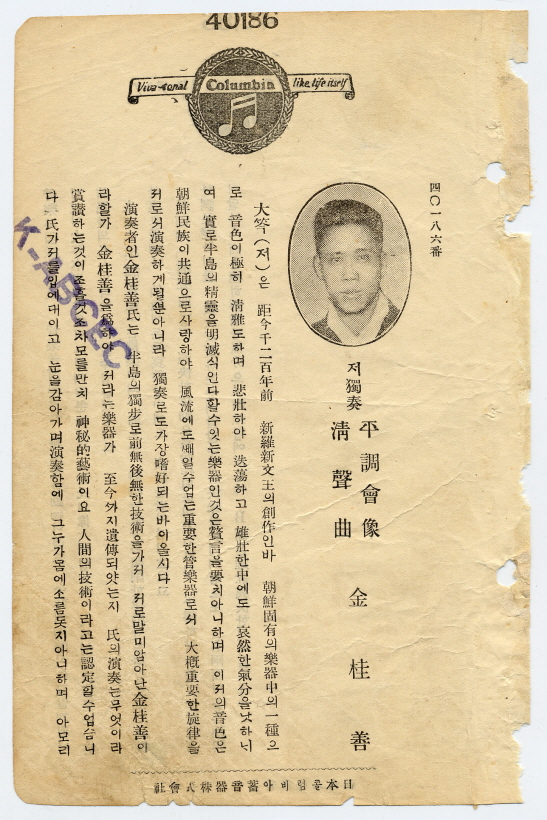 40186
Viva-tonal
Columbia
like life itself
四〇一八六番
저獨奏
平調會像
淸聲曲
金桂善
大笒(저)은 距今千二百年前 新羅新文王의創作인바 朝鮮固有의樂器中의一種으
로 音色이極히 淸雅도하며 悲壯하야 迭蕩하고 雄壯한中에도 哀然한氣分을낫하너
여 實로半島의精靈을明滅식인다할수잇는樂器인것은贅言을要치아니하며 이저의音色은
朝鮮民族이共通으로사랑하야 風流에도빼일수업는重要한管樂器로서 大槪重要한旋律을
저로서演奏하게될뿐아니라 獨奏로도가장嗜好되는바이올시다
演奏者인金桂善氏는 半島의獨步로前無後無한技術을가저 저로말미암아난金桂善이
라할가 金桂善을爲하야 저라는樂器가 至今까지遺傳되얏는지 氏의演奏는무엇이라
賞讚하는것이조흘것조차모를만치 神秘的藝術이요 人間의技術이라고는認定할수업슴니
다 氏가저를입에대이고 눈을감아가며演奏함에 그누가몸에소름돗지아니하며 아모리
日本콜럼비아蓄音器株式會社
K-ABCEC